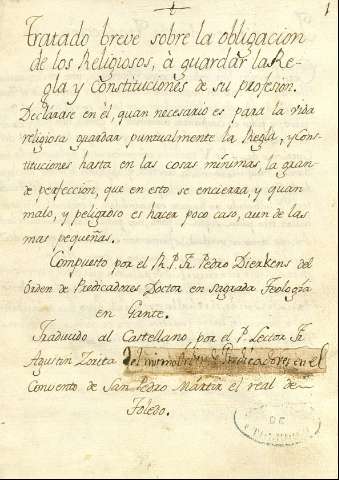 1
Tratado breve sobre la obligacion
de los Religiosos, à guardar la Re-
gla y Constituciones de su profesion.
Declarase en él, quan necesario es para la vida
religiosa guardar puntualmente la Regla, y Cons-
tituciones hasta en las cosas mínimas, la gran-
de perfeccion, que en esto se encierra, y quan
malo, y peligroso es hacer poco caso, aun de las
mas pequeñas.
Compuesto por el R. P. Fr. Pedro Dierkens del
Orden de Predicadores Doctor en Sagrada Teología
en Gante.
Traducido al Castellano, por el P. Lector Fr.
Agustin Zorita del mismo Orden de Predicadores, en el
Convento de San Pedro Mártir el real de
Toledo.